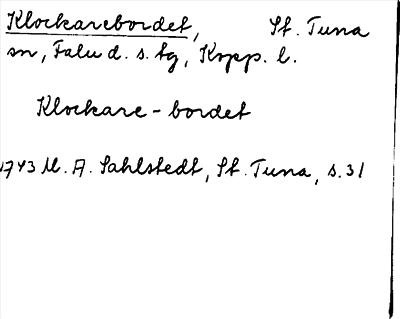 Klockarebordet, St. Tuna
sn, Falu d. s. tg, Kopp. l.
Klockare-bordet
1743 M. A. Sahlstedt, St. Tuna, s. 31